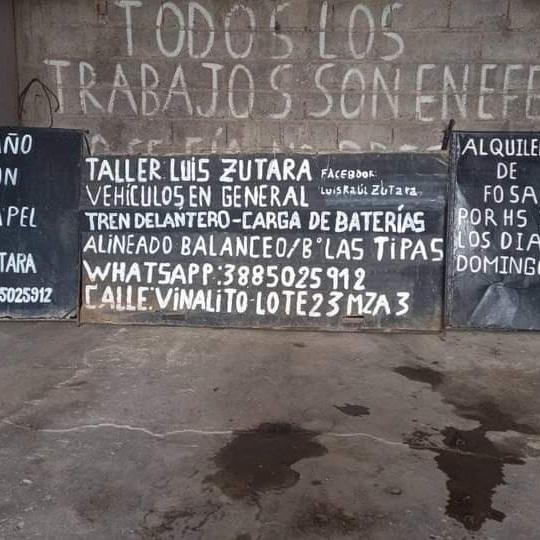 TODOS LOS
TRABAJOS SON EN EFE
AÑO
ON
APEL
TARA
5025912
TALLER: LUIS ZUTARA
FACEBOOK:
LUIS RAÚL ZUTARA
VEHÍCULOS EN GENERAL
TREN DELANTERO-CARGA DE BATERÍAS
ALINEADO BALANCEO/B° LAS TIPAS
WHATSAPP:3885025912
CALLE:VINALITO-LOTE 23 MZA 3
ALQUILE
DE
FOSA
POR HS
LOS DIA
DOMINGO